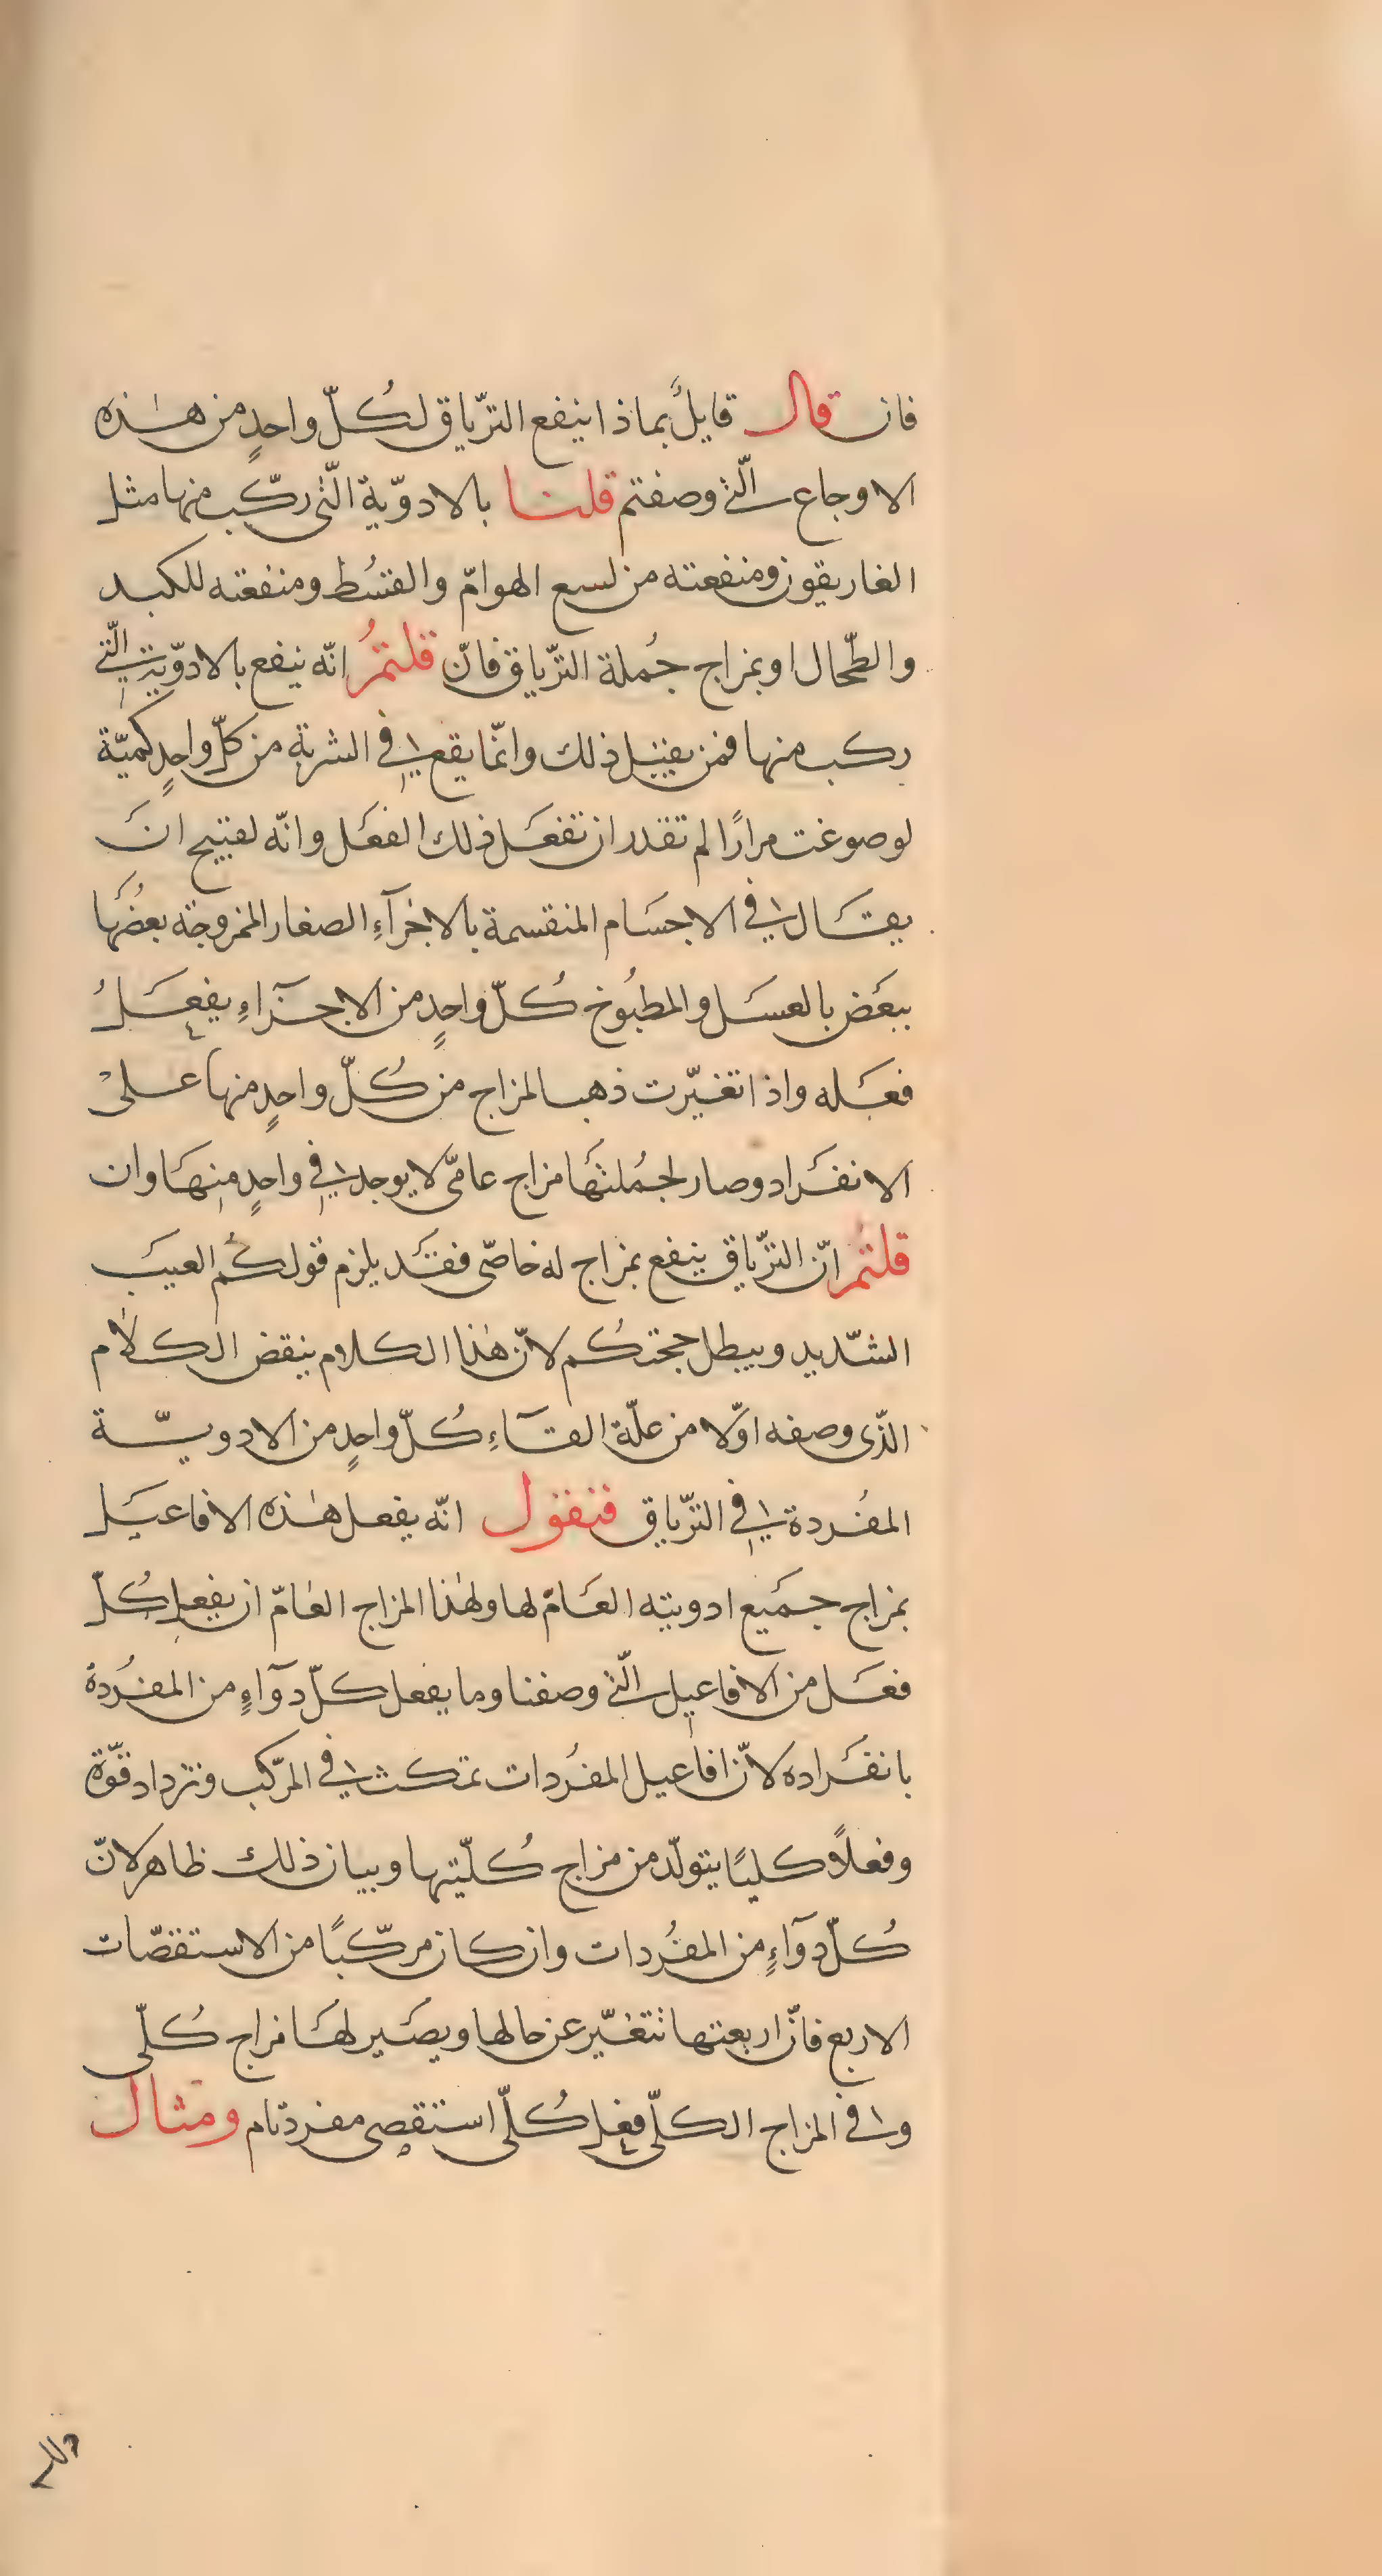 فان قال قايلٌ بماذا ينفع الترّياق لكُلّ واحدٍ من هٰذه
الاوجاع الّتى وصفتم قلنا بالادوّية الّتى ركّب منها مثل
الغاريقون ومنفعته من لسع الهوامّ والقسُط ومنفعته للكبد
والطّحال او بمزاج جُملة الترّياق فانّ قلتمُ انّه ينفع بالادوّية الّتى
ركب منها فمن يقبل ذلك وانمّا يقع فى الشربة من كلّ واحدٍ كميّة
لو صوغت مرارًا لم تقدر ان تفعَل ذلك الفعَل وانّه لقبيح انَ
يقَال فى الاجسَام المنقسمة بالاجزآءِ الصغار الممزوجة بعضُهَا
ببعَض بالعسَل والمطبُوخ كُلّ واحدٍ من الاجزَآءِ يفعَلُ
فعَله واذا تغيّرت ذهب المزاج من كُلّ واحدٍ منها علىْ
الانفَراد وصار لجمُلتهَا مزاج عامىّ لا يوجد فى واحدٍ منهَا وان
قلتُم انّ الترّياق ينفع بمزاج له خاصّى فقَد يلزم قولكُم العيَب
الشّديد ويبطل حجتكُم لانّ هٰذا الكلام ينقض الكلٰام
الذّى وصفه اوّلا من علّة القَآءِ كُلّ واحدٍ من الادويّة
المفُردة فى الترّياق فنقول انّه يفعل هٰذه الافاعيَل
بمزاج جمَيع ادويته العَامّ لها ولهٰذا المزاج العٰامّ ان يفعل كُلّ
فعَل من الافاعيل الّتى وصفنا وما يفعل كلّ دوآءٍ من المفُردة
بانفَراده لانّ افاعيل المفُردات تمكث فى المركّب وتزداد قوّة
وفعلاً كليًا يتولّد من مزاج كُلّيتها وبيان ذلك ظاهر لانّ
كُلّ دوآءٍ من المفُردات وان كان مركّبًا من الاستقصّات
الاربع فانّ اربعتها تتغيّر عن حالها ويصَير لهَا مزاج كُلّى
وفى المزاج الكلّى فعل كُلّى استقصى مفرد تام ومثال